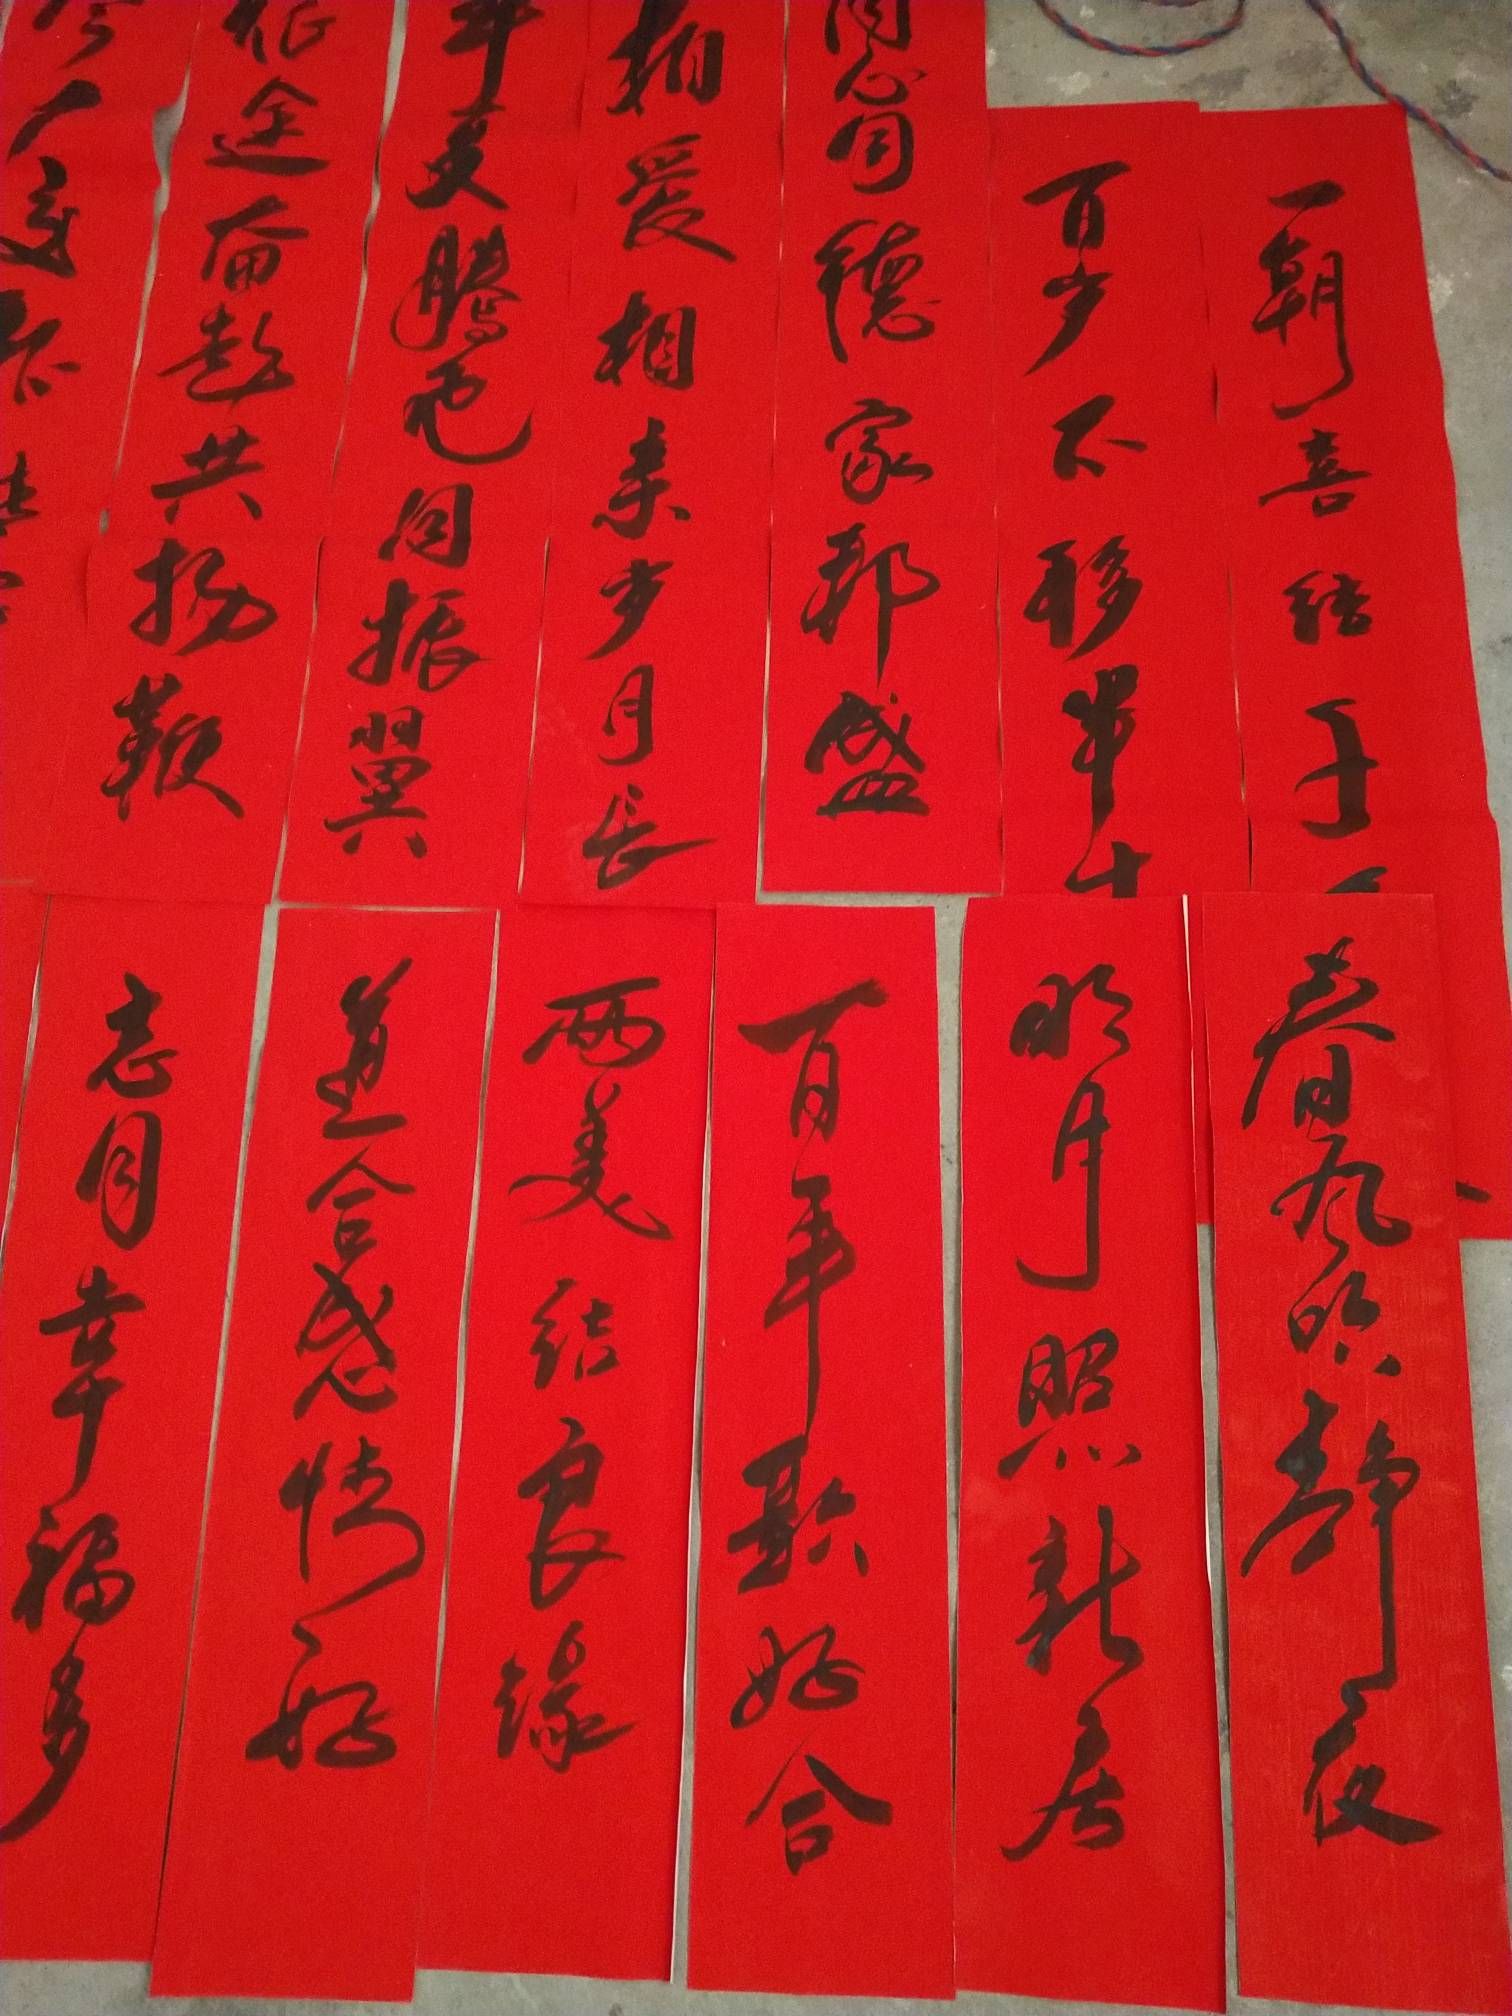 一朝喜结千
百岁不移半
同心同德家邦盛
相爱相亲岁月长
年更腾飞同振翼
征途奋共扬鞭
春风吹静夜
明月照新居
百年歌好合
两美结良缘
道合感情好
志同幸福多